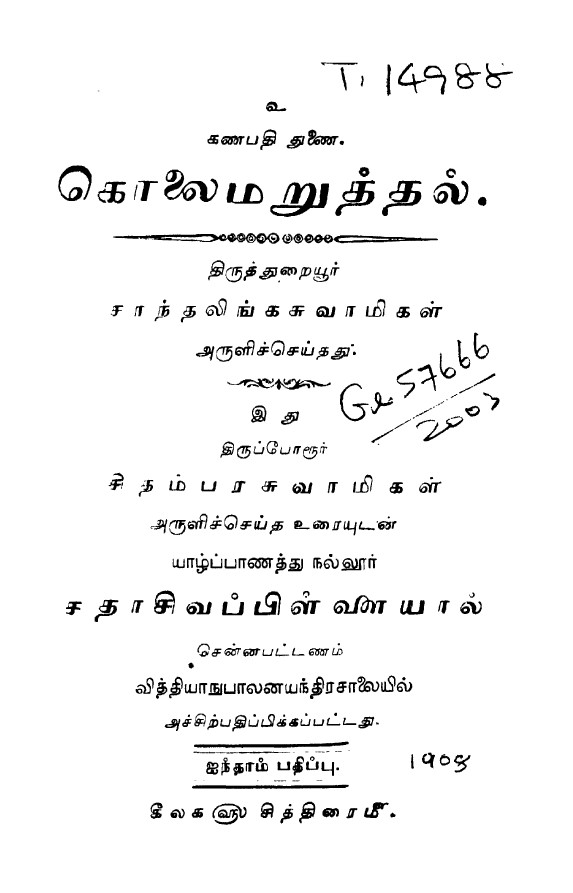 T. 14988
உ
கணபதி துணை.
கொலைமறுத்தல்.
திருத்துறையூர்
சாந்தலிங்கசுவாமிகள்
அருளிச்செய்தது.
Ge 57666
2003
இது
திருப்போரூர்
சிதம்பரசுவாமிகள்
அருளிச்செய்த உரையுடன்
யாழ்ப்பாணத்து நல்லூர்
சதாசிவப்பிள்ளையால்
சென்னபட்டணம்
வித்தியாநுபாலனயந்திரசாலையில்
அச்சிற்பதிப்பிக்கப்பட்டது.
ஐந்தாம் பதிப்பு.
கீலக௵ சித்திரைமீ.